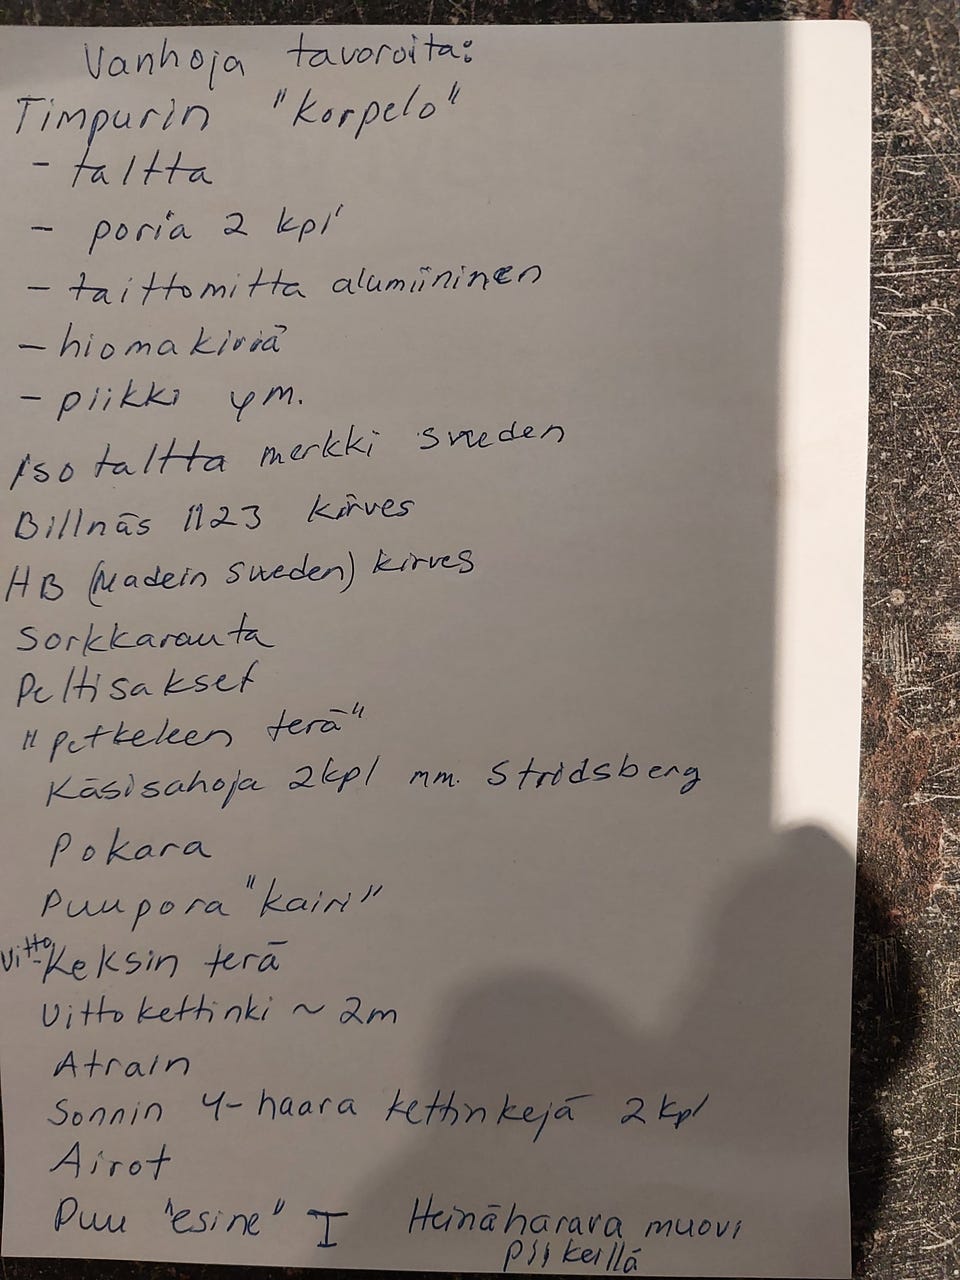 Vanhoja tavoroita:
Timpurin "Korpelo"
- taltta
- poria 2 kpl
- taittomitta alumiininen
- hiomakiviä
- piikki ym.
iso taltta merkki sveden
Billnäs 1123 kirves
HB (Madein Sweden) kirves
Sorkkarauta
Peltisakset
"petkeleen terä"
Käsisahoja 2kpl mm. Stridsberg
Pokara
Puupora "kairi"
Uitto-Keksin terä
Uittokettinki ~ 2m
Atrain
Sonnin 4-haara kettinkejä 2 kpl
Airot
Puu "esine" I Heinäharava muovi
piikeillä